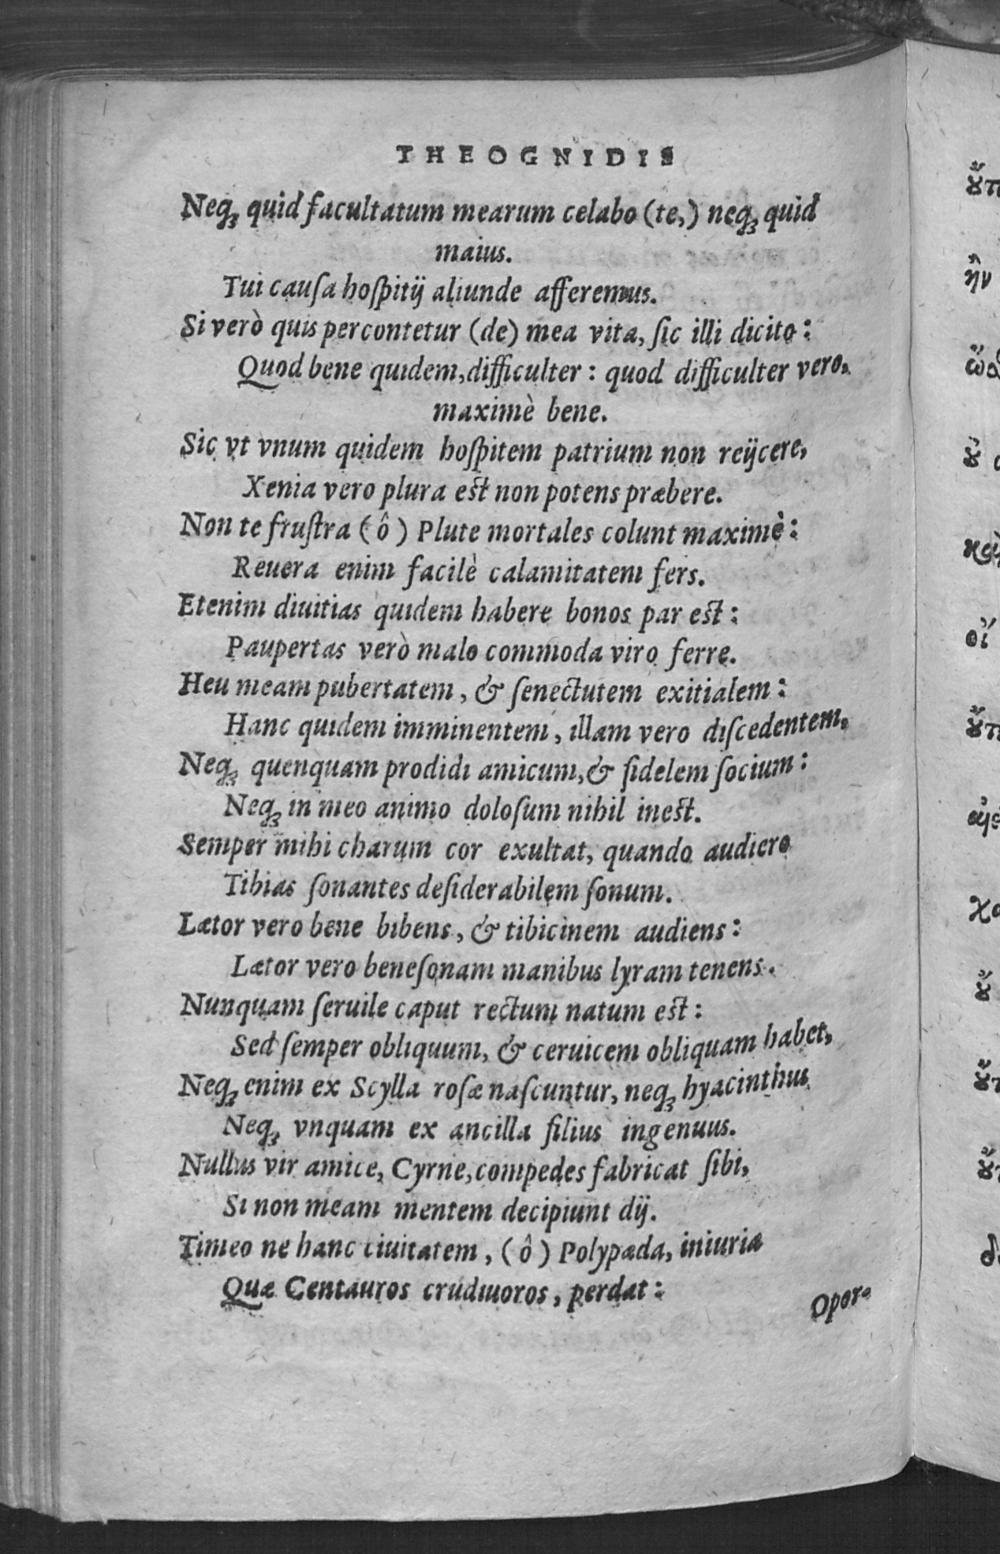 THEOGNIDIS
Neqꝫ quid facultatum mearum celabo (te,) neqꝫ quid
maius.
Tui cauſa hoſpitij aliunde afferemus.
Si verò quis percontetur (de) mea vita, ſic illi dicito:
Quod bene quidem, difficulter: quod difficulter vero,
maximè bene.
Sic vt vnum quidem hoſpitem patrium non reijcere,
Xenia vero plura eſt non potens præbere.
Non te fruſtra (ô) Plute mortales colunt maximè:
Reuera enim facilè calamitatem fers.
Etenim diuitias quidem habere bonos par eſt:
Paupertas verò malo commoda viro ferre.
Heu meam pubertatem, & ſenectutem exitialem:
Hanc quidem imminentem, illam vero diſcedentem,
Neqꝫ quenquam prodidi amicum, & fidelem ſocium:
Neqꝫ in meo animo doloſum nihil ineſt.
Semper mihi charum cor exultat, quando audiero
Tibias ſonantes deſiderabilem ſonum.
Lætor vero bene bibens, & tibicinem audiens:
Lætor vero beneſonam manibus lyram tenens.
Nunquam ſeruile caput rectum natum eſt:
Sed ſemper obliquum, & ceruicem obliquam habet,
Neqꝫ enim ex Scylla roſæ naſcuntur, neqꝫ hyacinthus
Neqꝫ vnquam ex ancilla filius ingenuus.
Nullus vir amice, Cyrne, compedes fabricat ſibi,
Si non meam mentem decipiunt dij.
Timeo ne hanc ciuitatem, (ô) Polypæda, iniuria
Quæ Centauros crudiuoros, perdat:
Oper-
ἢν
οἵ